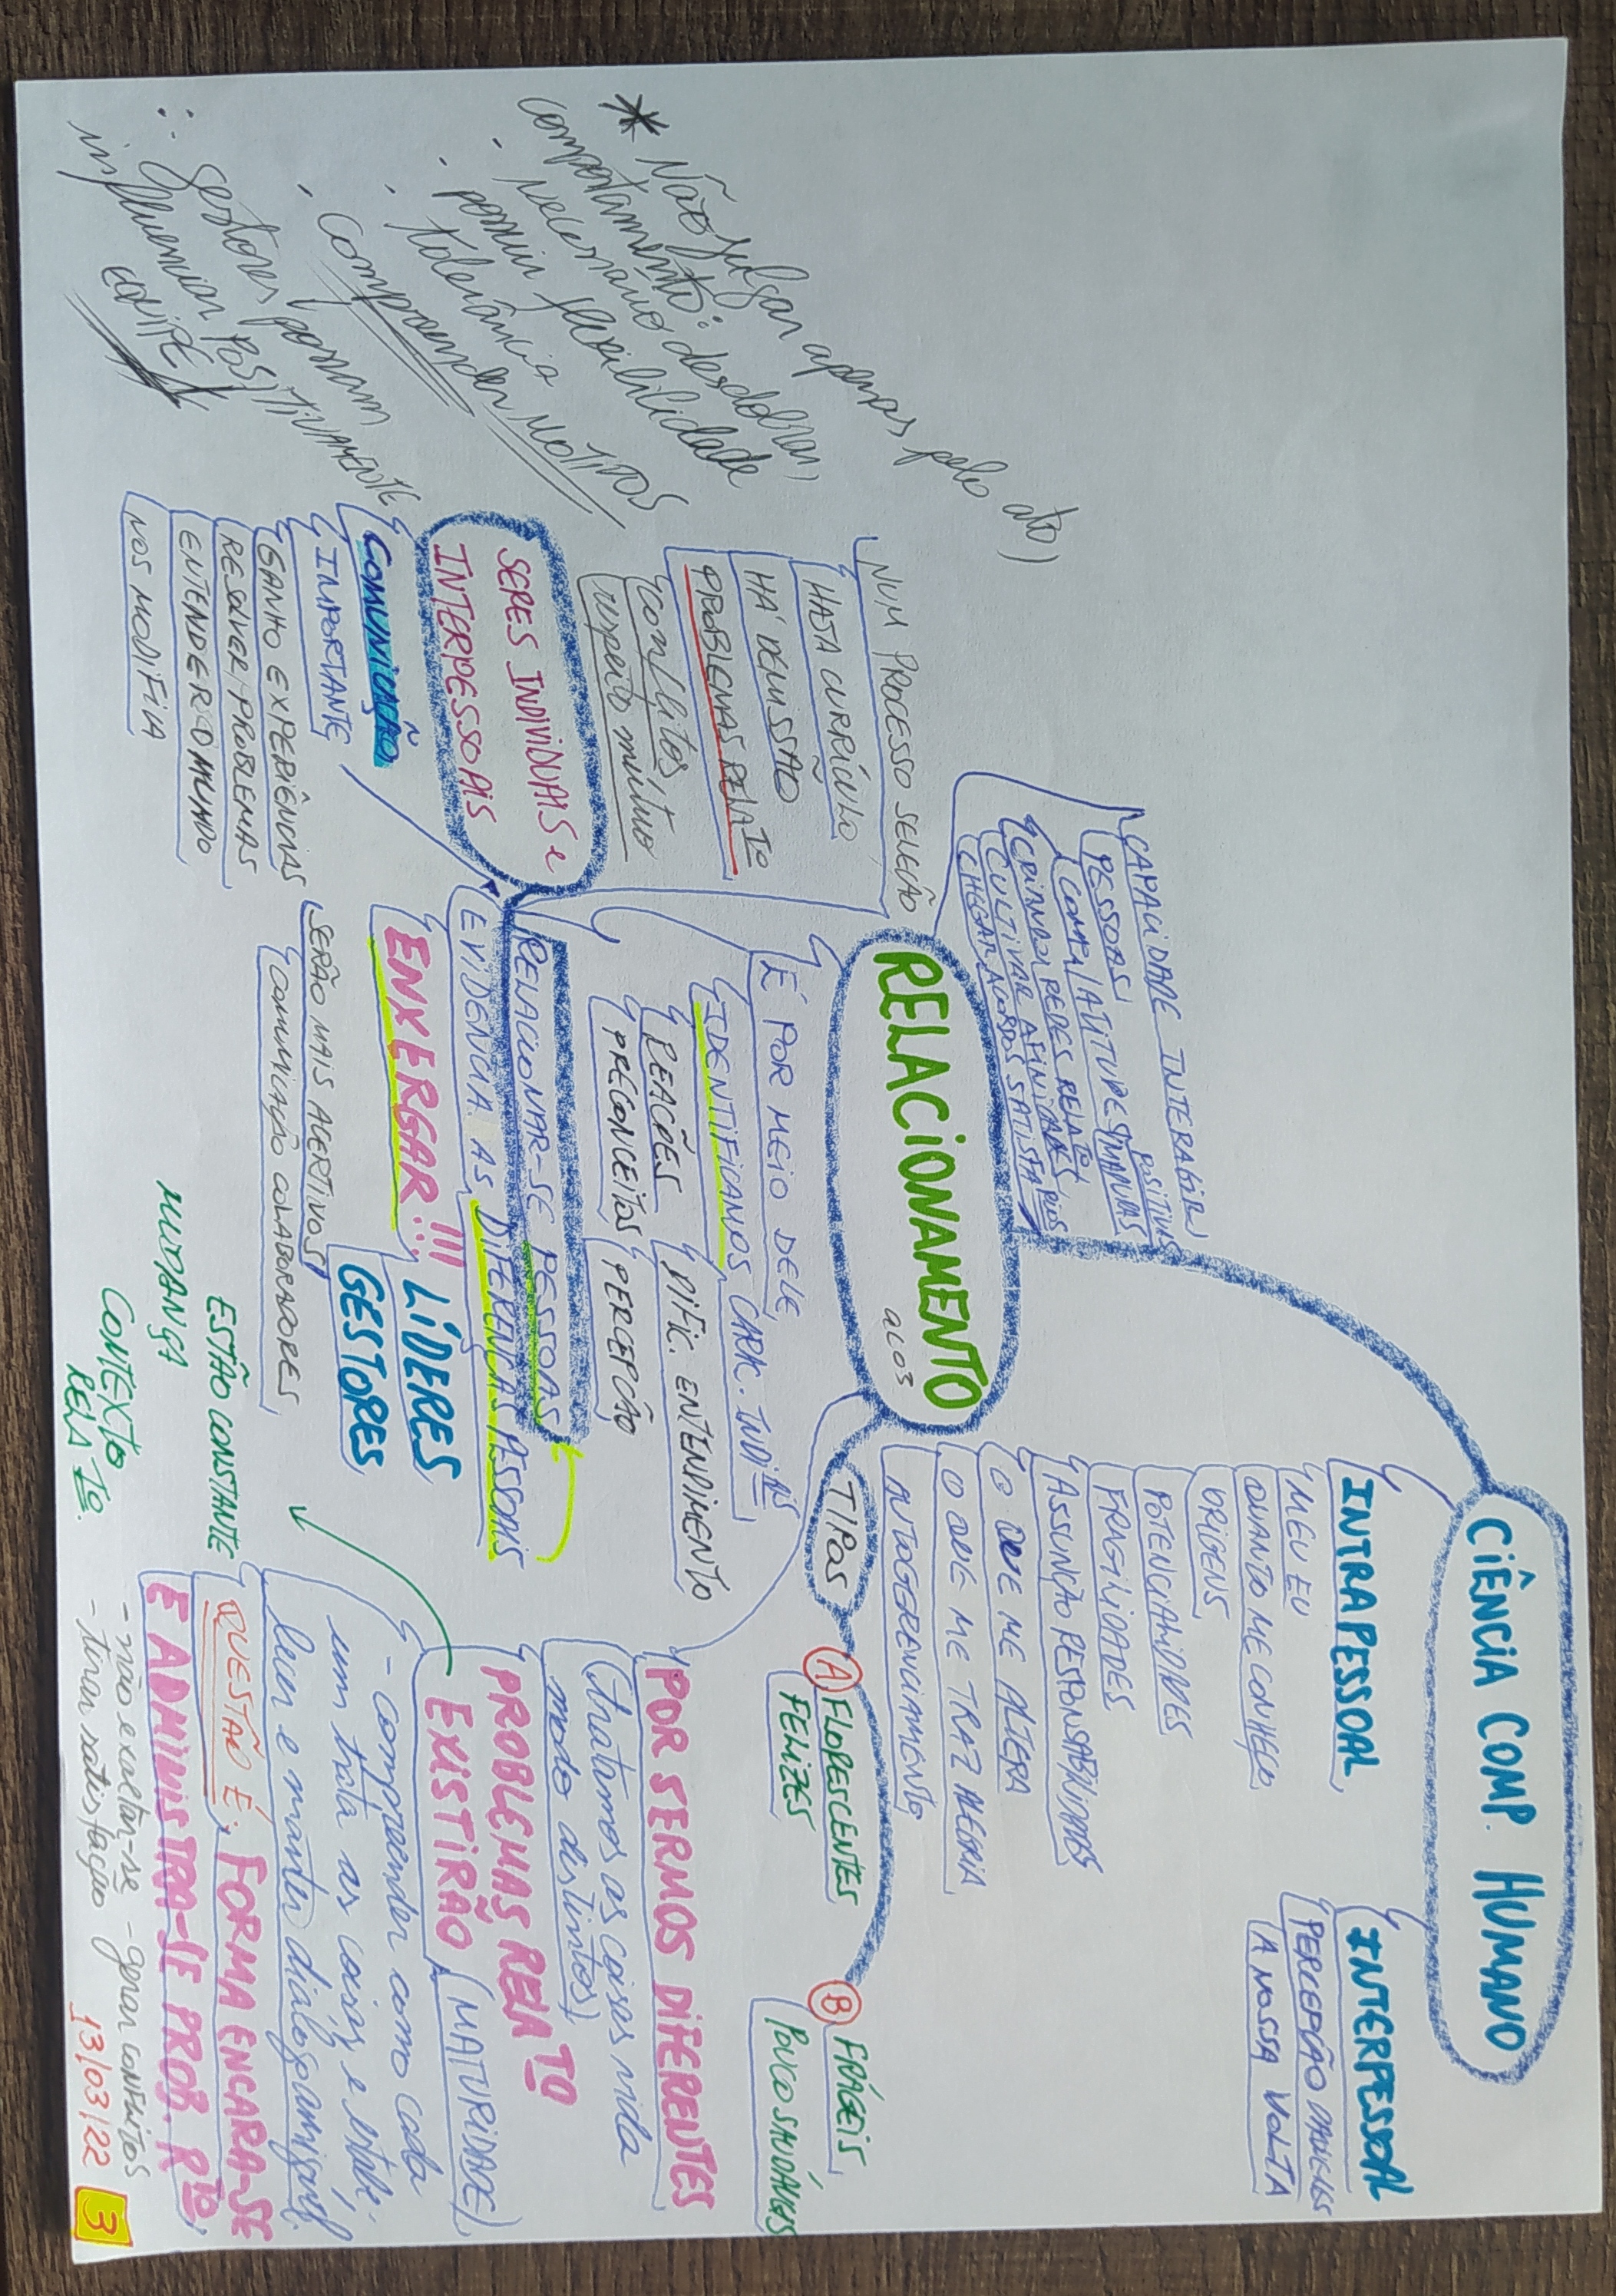 CIÊNCIA COMP. HUMANO
INTRAPESSOAL
MEU EU
QUANTO ME CONHEÇO
ORIGENS
POTENCIALIDADES
FRAGILIDADES
ASSUNÇÃO RESPONSABILIDADES
O QUE ME ALTERA
O QUE ME TRAZ ALEGRIA
AUTOGERENCIAMENTO
INTERPESSOAL
PERCEPÇÃO DAQUELES
A NOSSA VOLTA
CAPACIDADE INTERAGIR
PESSOAS
COMP/ATITUDES POSITIVAS
MADURAS
CRIANDO REDES RELATO
CULTIVAR AFINIDADES
CHEGAR ACORDOS SATISFA RIOS
RELACIONAMENTO
aL03
TIPOS
A FLORESCENTES
FELIZES
B FRÁGEIS
POUCO SAUDÁVEIS
NUM PROCESSO SELEÇÃO
HAJA CURRÍCULO
HÁ DEMISSÃO
PROBLEMAS RELATO
conflitos
respeito mútuo
É POR MEIO DELE
IDENTIFICAMOS CARAC. INDIAIS
REAÇÕES
PRECONCEITOS
DIFIC. ENTENDIMENTO
PERCEPÇÃO
RELACIONAR-SE PESSOAS
EVIDENCIA AS DIFERENÇAS PESSOAIS
ENXERGAR!!!
LÍDERES
GESTORES
SERÃO MAIS ACERTIVOS
COMUNICAÇÃO COLABORADORES
SERES INDIVIDUAIS e
INTERPESSOAIS
COMUNICAÇÃO
IMPORTANTE
GANHO EXPERIÊNCIAS
RESOLVER PROBLEMAS
ENTENDER O MUNDO
NOS MODIFICA
POR SERMOS DIFERENTES
(tratamos as coisas vida
modo distintos)
PROBLEMAS RELATO
EXISTIRÃO (MATURIDADE)
- compreender como cada
um trata as coisas, e estabe-
lecer e manter diálogo amigável.
QUESTÃO É: FORMA ENCARA-SE
E ADMINISTRA-SE PROB. RTO
- não exaltar-se - gerar CONFLITOS
- tirar satisfação
13/03/22 3
ESTÃO CONSTANTE
MUDANÇA
CONTEXTO
RELATO.
* Não julgar apenas pelo ato,
comportamento:
- necessário desdobrar,
- possuir flexibilidade
- tolerância
- compreender MOTIVOS
∴ gestores possam
influenciar POSITIVAMENTE
EQUIPE